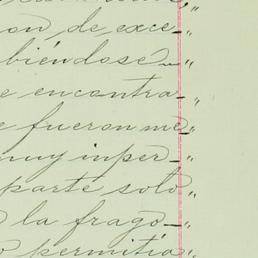 on, de exce-"
biéndose-"
e encontra-"
e fueron me-"
muy inper-"
parte solo"
la frago-"
permitía"